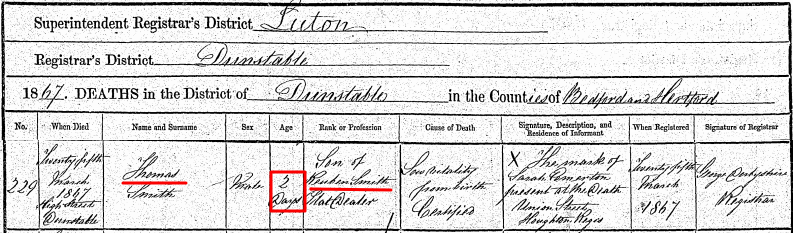 Superintendent Registrar's District Luton
Registrar's District Dunstable
1867. DEATHS in the District of Dunstable in the Counties of Bedford and Hertford
No. When Died Name and Surname Sex Age Rank or Profession Cause of Death Signature, Description, and Residence of Informant When Registered Signature of Registrar
229
Twenty fifth
March
1867
High Street
Dunstable
Thomas
Smith
Male
2
Days
Son of
Reuben Smith
Hat Dealer
Low Vitality
from birth
Certified
X The mark of
Sarah
present at the Death
Union Street
Houghton Regis
Twenty fifth
March
1867
George Derbyshire
Registrar